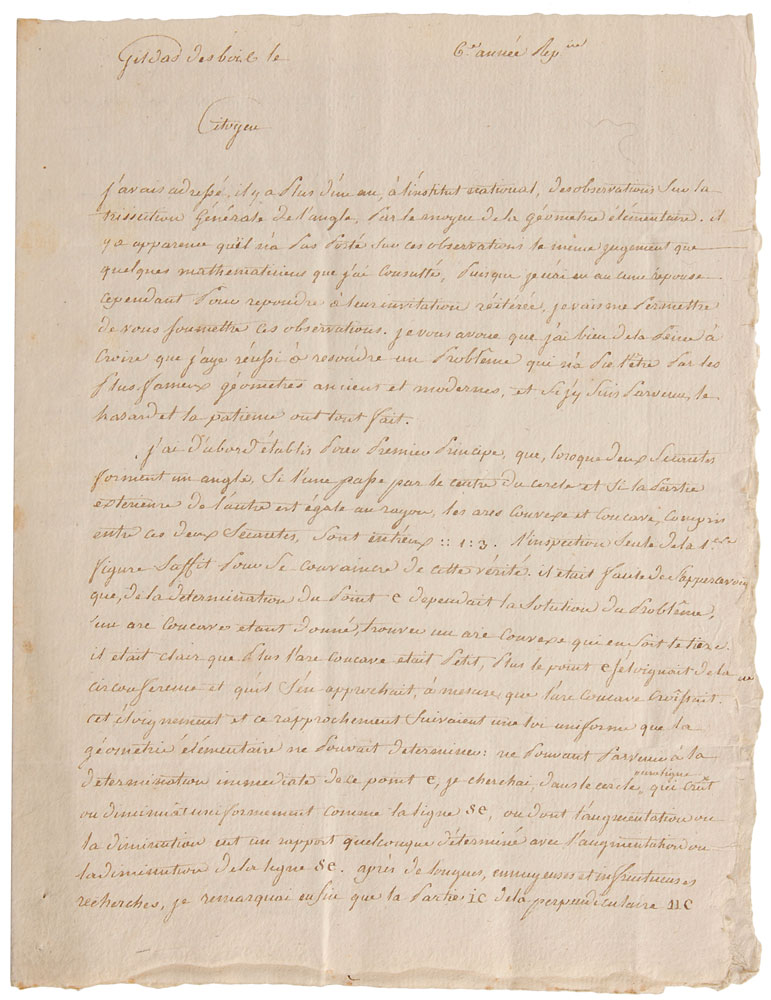 Gildas des bois le 6.e année Rep.ine
Citoyen
j'avais adressé, il y a plus d'un an, à l'institut national, des observations sur la
trissection générale de l'angle, par le moyen de la géometrie élémentaire. il
y a apparence qu'il n'a pas porté sur ces observations le même jugement que
quelques mathematiciens que j'ai consulté, puisque je n'ai eu aucune reponse.
cependant pour repondre à leur invitation réitérée, je vais me permettre
de vous soumettre ces observations. je vous avoue que j'ai bien de la peine à
croire que j'aye réussi à resoudre un problême qui n'a pu l'être par les
plus fameux géometres anciens et modernes, et si j'y suis parvenu, le
hasard et la patience ont tout fait.
j'ai d'abord établis pour premier principe, que, lorsque deux secantes
forment un angle, si l'une passe par le centre du cercle et si la partie
exterieure de l'autre est égale au rayon, les arcs convexe et concave, compris
entre ces deux secantes, sont entr'eux :: 1 : 3. l'inspection seule de la 1.ere
figure suffit pour se convaincre de cette vérité. il était facile de s'appercevoir
que, de la determination du point c dependait la solution du problême,
un arc concave etant donné, trouver un arc convexe qui en soit le tiers.
il etait clair que plus l'arc concave etait petit, plus le point c s'eloignait de la
circonference et qu'il s'en approchait, à mesure que l'arc concave croissait.
cet éloignement et ce rapprochement suivaient une loi uniforme que la
géometrie élémentaire ne pouvait determiner: ne pouvant parvenir à la
determination immediate de ce point c, je cherchai, dans le cercle, une ligne qui crût
ou diminuat uniformement comme la ligne sc, ou dont l'augmentation ou
la diminution eut un rapport quelconque déterminé avec l'augmentation ou
la diminution de la ligne sc. après de longues, ennuyeuses et infructueuses
recherches, je remarquai enfin que la partie ic de la perpendiculaire